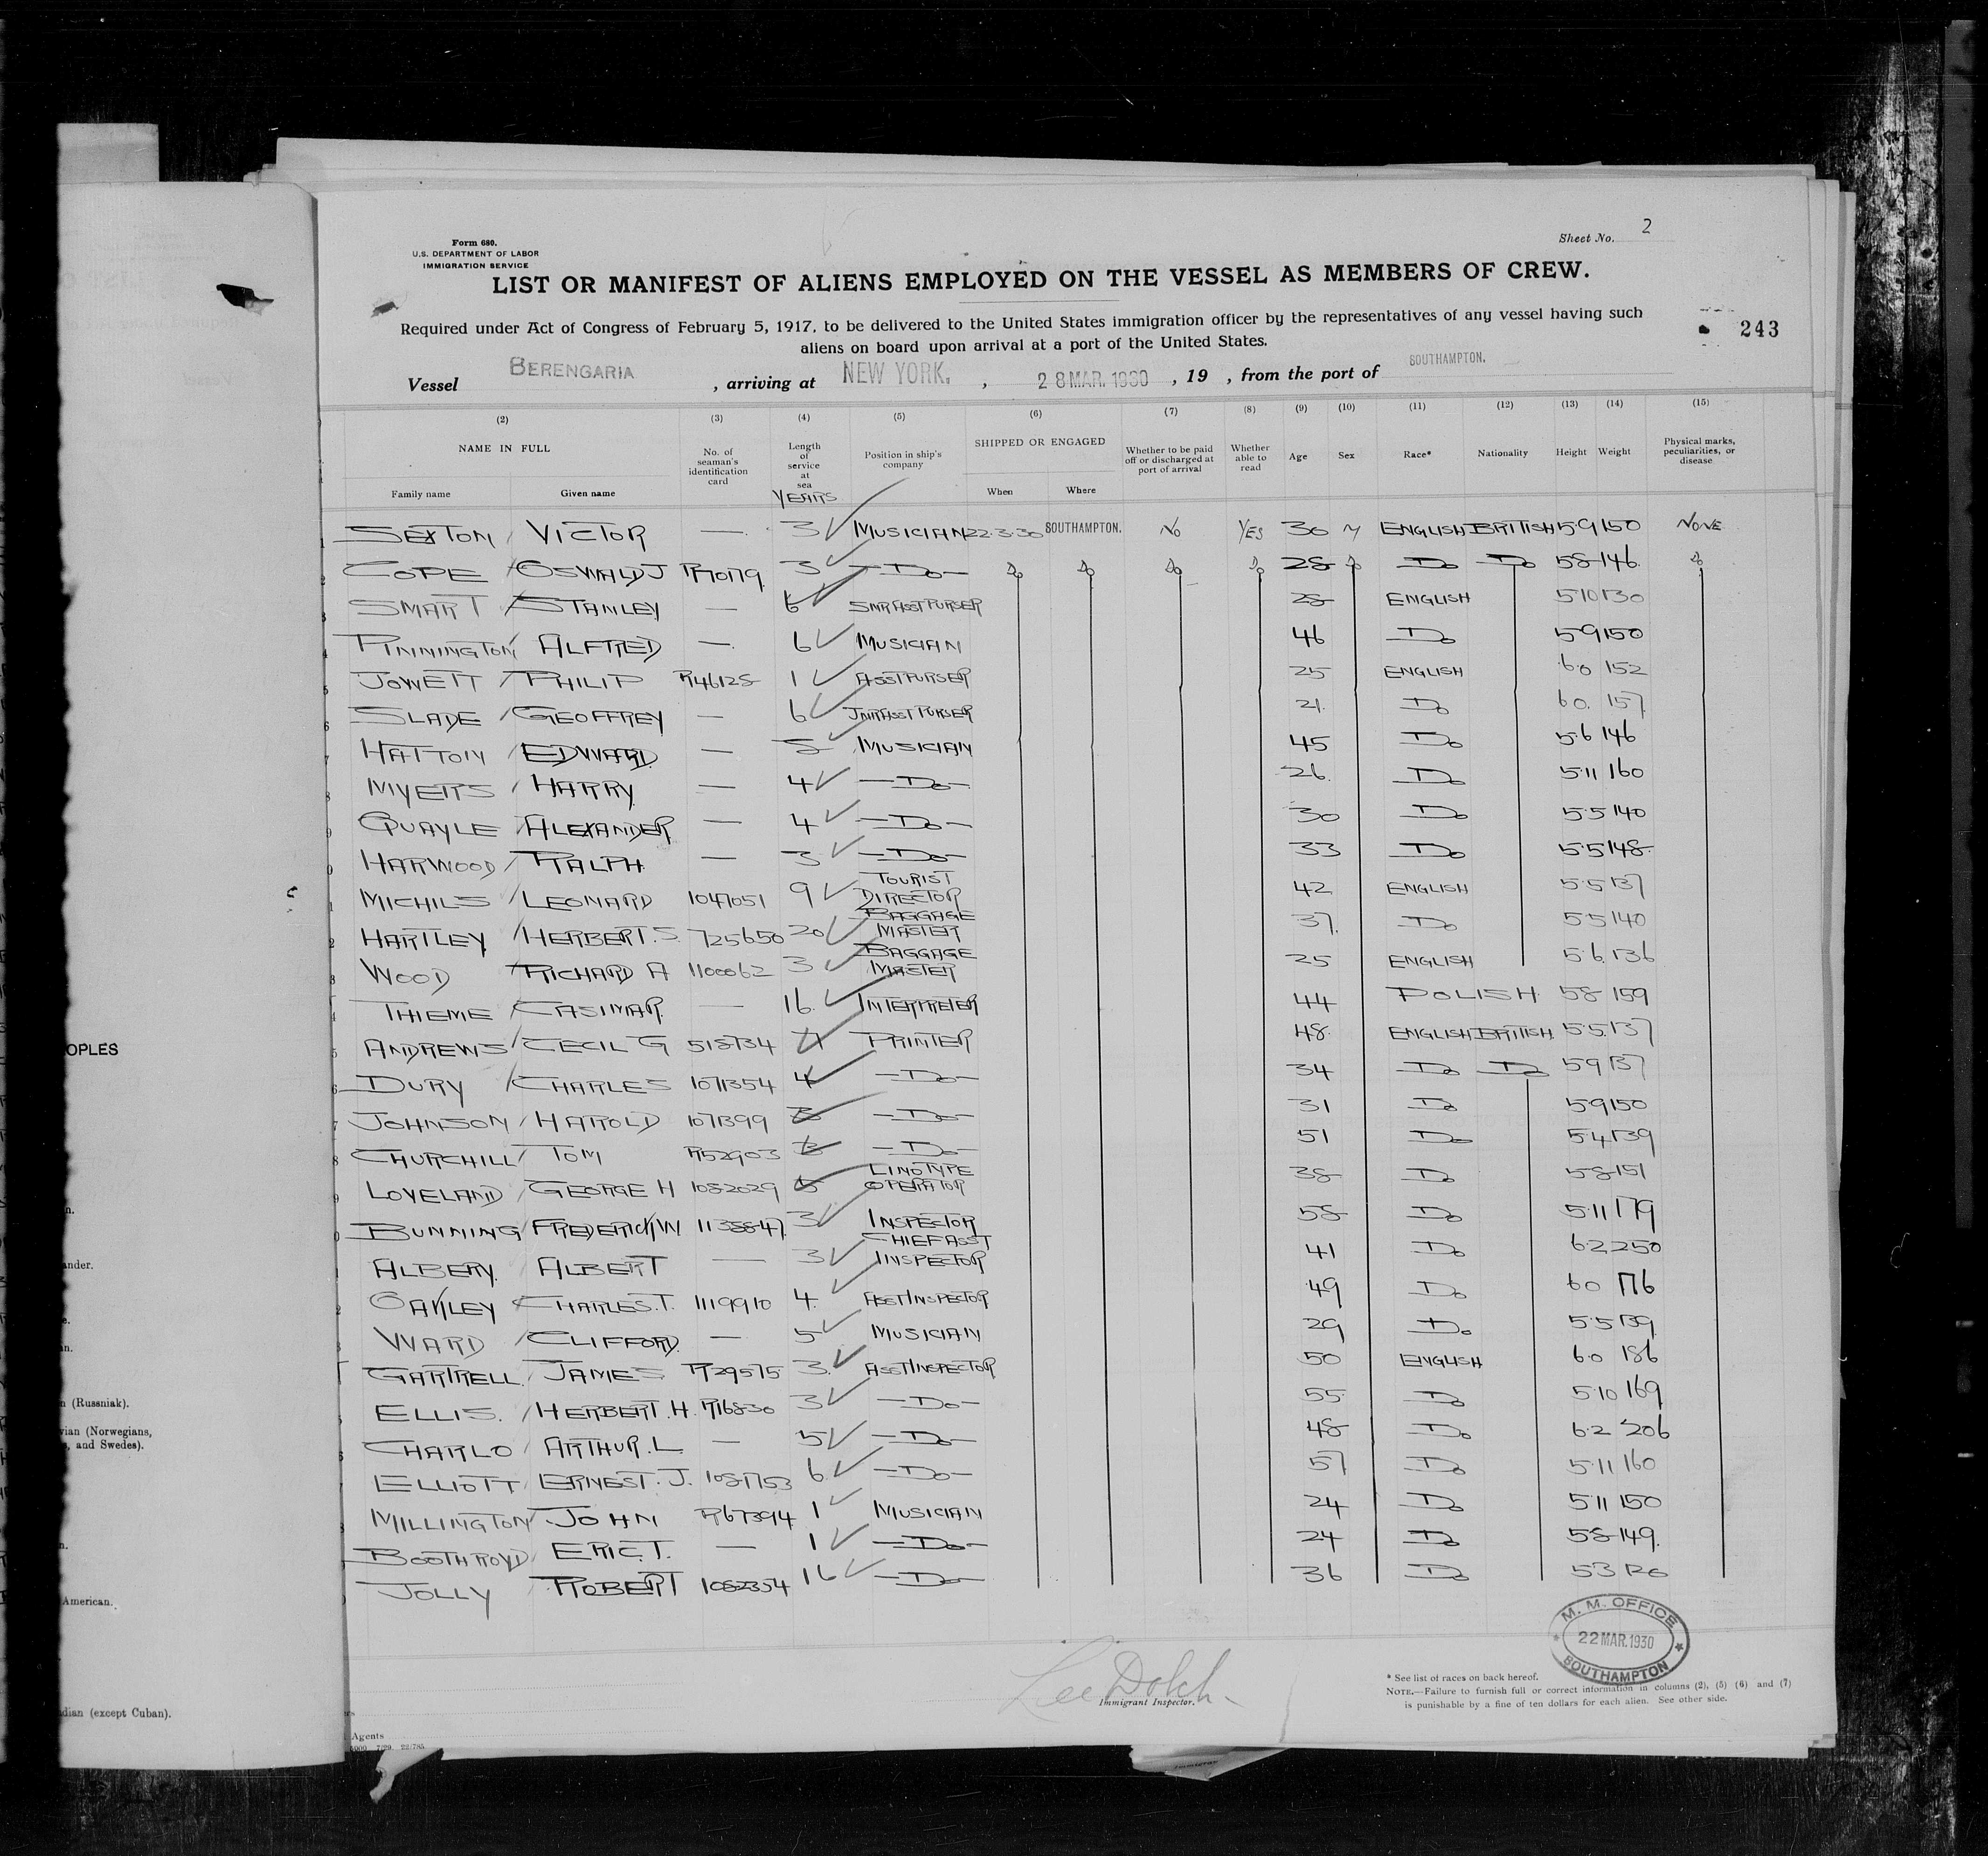 Form 680.
U.S. DEPARTMENT OF LABOR
IMMIGRATION SERVICE
Sheet No. 2
LIST OR MANIFEST OF ALIENS EMPLOYED ON THE VESSEL AS MEMBERS OF CREW.
Required under Act of Congress of February 5, 1917, to be delivered to the United States immigration officer by the representatives of any vessel having such
aliens on board upon arrival at a port of the United States.
243
Vessel BERENGARIA , arriving at NEW YORK. , 28 MAR. 1930 , 19 , from the port of SOUTHAMPTON.
(2) (3) (4) (5) (6) (7) (8) (9) (10) (11) (12) (13) (14) (15)
NAME IN FULL No. of seaman's identification card Length of service at sea Position in ship's company SHIPPED OR ENGAGED Whether to be paid off or discharged at port of arrival Whether able to read Age Sex Race* Nationality Height Weight Physical marks, peculiarities, or disease
Family name Given name YEARS When Where
SEXTON VICTOR — 3 MUSICIAN 22.3.30 SOUTHAMPTON. NO YES 30 M ENGLISH BRITISH 5.9 150 NONE
COPE OSWALD J R70179 3 —Do— Do Do Do Do 28 Do Do Do 5.8 146 Do
SMART STANLEY — 6 SNR ASST PURSER 28 ENGLISH 5.10 130
PINNINGTON ALFRED — 6 MUSICIAN 46 Do 5.9 150
JOWETT PHILIP R46128 1 ASST PURSER 25 ENGLISH 6.0 152
SLADE GEOFFREY — 6 JNR ASST PURSER 21 Do 6.0 157
HATTON EDWARD — MUSICIAN 45 Do 5.6 146
MYERS HARRY — 4 —Do— 26 Do 5.11 160
QUAYLE ALEXANDER — 4 —Do— 30 Do 5.5 140
HARWOOD RALPH — 3 —Do— 33 Do 5.5 148
MICHILS LEONARD 1047051 9 TOURIST DIRECTOR 42 ENGLISH 5.5 137
HARTLEY HERBERT. S. 725650 20 BAGGAGE MASTER 37 Do 5.5 140
WOOD RICHARD A 1100062 3 BAGGAGE MASTER 25 ENGLISH 5.6 136
THIEME CASIMAR — 16 INTERPRETER 44 POLISH 5.8 159
ANDREWS CECIL G 518734 PRINTER 48 ENGLISH BRITISH 5.5 137
DURY CHARLES 1071354 4 —Do— 34 Do Do 5.9 137
JOHNSON HAROLD 1071399 3 —Do— 31 Do 5.9 150
CHURCHILL TOM R52903 —Do— 51 Do 5.4 139
LOVELAND GEORGE H 1082029 5 LINOTYPE OPERATOR 38 Do 5.8 151
BUNNING FREDERICK W 1138847 3 INSPECTOR 58 Do 5.11 179
ALBERY ALBERT — 3 CHIEF ASST INSPECTOR 41 Do 6.2 250
OAKLEY CHARLES. T. 1119910 4 ASST INSPECTOR 49 Do 6.0 176
WARD CLIFFORD — 5 MUSICIAN 29 Do 5.5 139
GARTRELL JAMES R29575 3 ASST INSPECTOR 50 ENGLISH 6.0 186
ELLIS. HERBERT. H. R16830 3 —Do— 55 Do 5.10 169
CHARLO ARTHUR. L — 5 —Do— 48 Do 6.2 206
ELLIOTT ERNEST. J. 1081753 6 —Do— 57 Do 5.11 160
MILLINGTON JOHN R67394 1 MUSICIAN 24 Do 5.11 150
BOOTHROYD ERIC. T. — 1 —Do— 24 Do 5.8 149
JOLLY ROBERT 1082354 16 —Do— 36 Do 5.3 120
Lee Dolch
Immigrant Inspector.
M. M. OFFICE
22 MAR. 1930
SOUTHAMPTON
* See list of races on back hereof.
NOTE.—Failure to furnish full or correct information in columns (2), (5) (6) and (7)
is punishable by a fine of ten dollars for each alien. See other side.
Agents
7/29. 22/785
OPLES
ander.
(Russniak).
vian (Norwegians,
, and Swedes).
American.
dian (except Cuban).